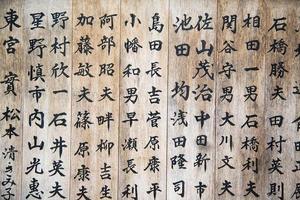 石橋勝夫 田村英則
相田一男 石橋利夫
関谷守男 大川文夫
佐山茂治 中田新市
池田均 浅田隆司
島田長吉 菅原康平
小幡和男 早瀬長利
阿部昭夫 畔柳吉生
加藤敏夫 篠原康夫
野村欣一 石井英夫
星野慎市 内山光恵
東宮實 松本清